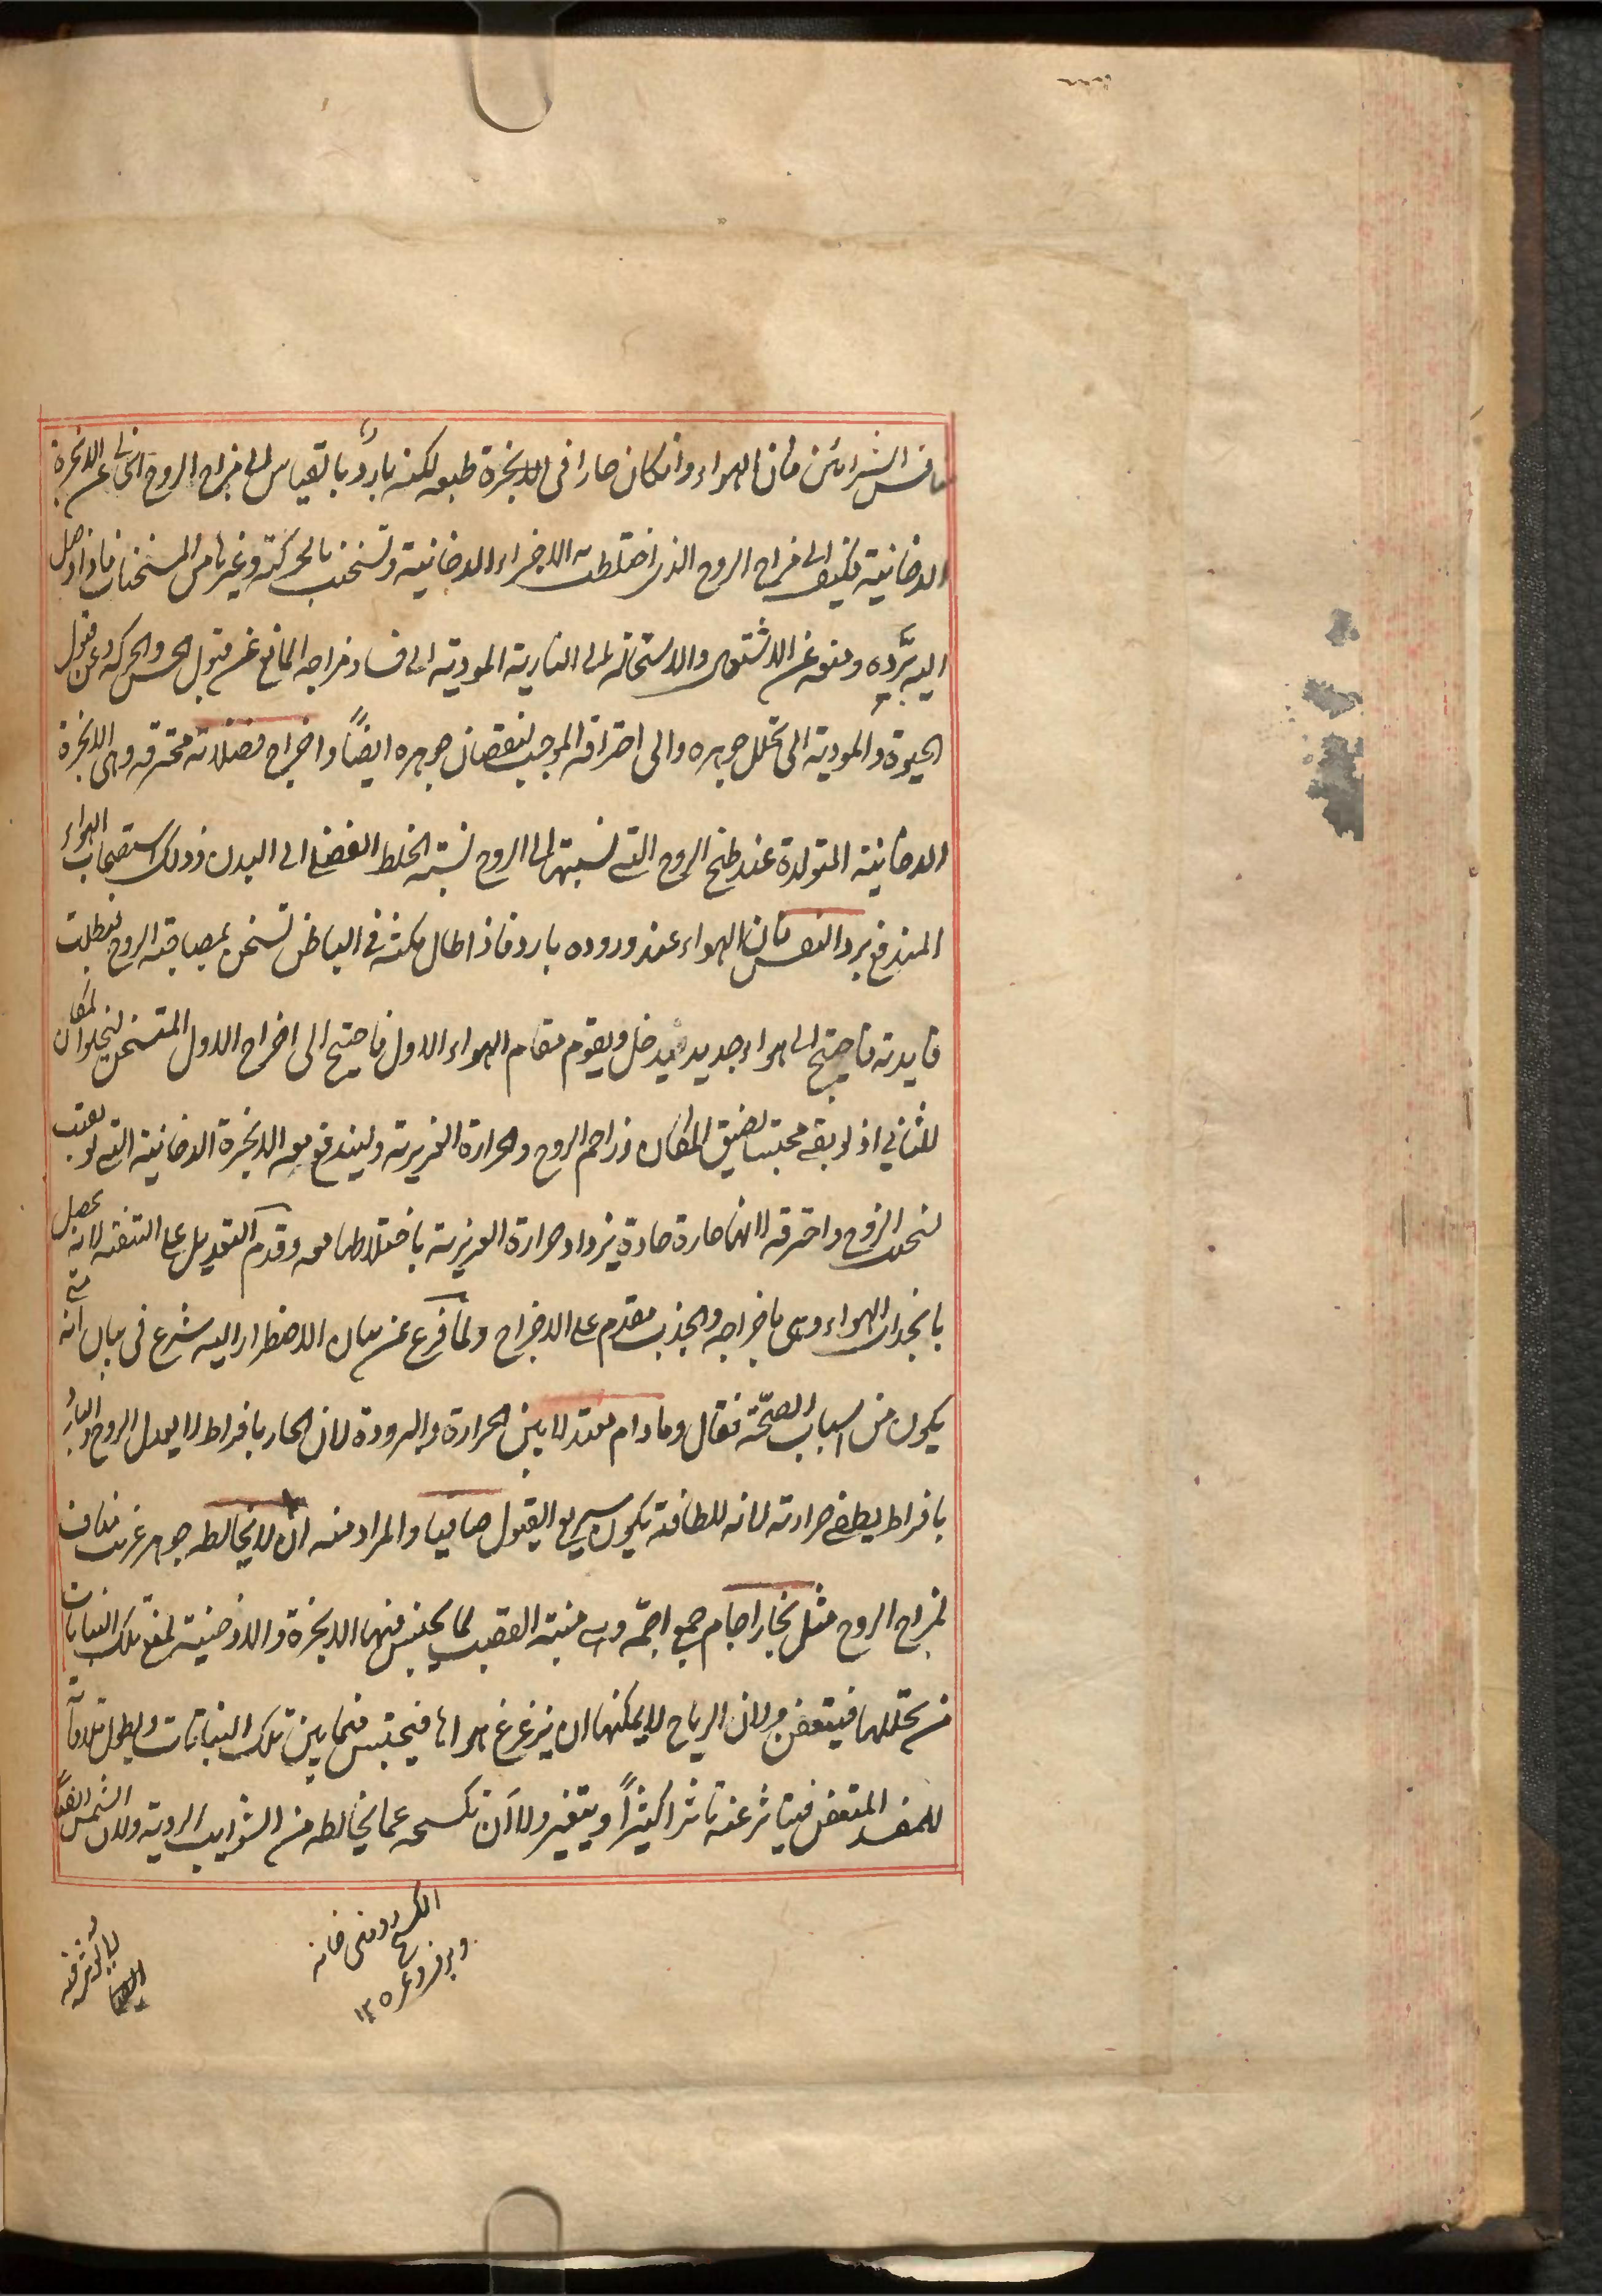 الشرائين فان الهواء وانكان حارا فى الابخرة طبعه لكنه بارد بالقياس الى مزاج الروح الخالى عن الابخرة
الدخانية فكيف الى مزاج الروح الذى اختلطت به الاجزاء الدخانية وتسخنت بالحركة وغيرها من المسخنات فاذا وصل
اليه برّده ومنعه عن الاشتعال والاستحالة الى النارية المودية الى فساد مزاجه المانع عن قبول الحس والحركة وعن قبول
الحيوة والمودية الى تحلل جوهره والى احتراقه الموجب لنقصان جوهره ايضاً واخراج فضلاته محترقه وهى الابخرة
الدخانية المتولدة عند طبخ الروح التى نسبتها الى الروح نسبة الخلط الفضلى الى البدن وذلك باستصحاب الهواء
المندفع برد النفس فان الهواء عند وروده بارد فاذا طال مكثه فى الباطن تسخن بمصاحبة الروح فبطلت
فايدته فاحتيج الى هواء جديد يدخل ويقوم مقام الهواء الاول فاحتيج الى اخراج الاول المتسخن ليخلو المكان
للثانى اذ لو بقى محتبسا لضيق المكان وزاحم الروح والحرارة الغريزية وليندفع معه الابخرة الدخانية التى لو بقيت
لسخنت الروح واحرقته لانها حارة حادة يزداد حرارة الغريزية باختلاطها معه وقدم التعديل على التنقية لانه يحصل
بانجذاب الهواء وهى باخراجه والجذب مقدم على الاخراج ولما فرغ عن بيان الاضطرار اليه شرع فى بيان انه متى
يكون من اسباب الصحّة فقال وما دام معتدلا بين الحرارة والبرودة لان الحار بافراط لا يعدل الروح والبارد
بافراط يطفى حرارته لانه للطافته يكون سريع القبول صافيا والمراد منه ان لا يخالطه جوهر غريب مناف
لمزاج الروح مثل بخار اجام جمع اجمّه وهى منبتة القصب لما يحتبس فيها الابخرة والادخنية لمنع تلك النباتات
من تحللها فيتعفن ولان الرياح لا يمكنها ان يزعزع هواها فيحتبس فيما بين تلك النباتات ويطول ملاقاته
للمفسد المتعفن فيتاثر عنه تاثرا كثيراً ويتغير ولا ان تكسحه عما يخالطه من الشوايب الردية ولان الشمس ايضاً
الكسح روفتن خانه